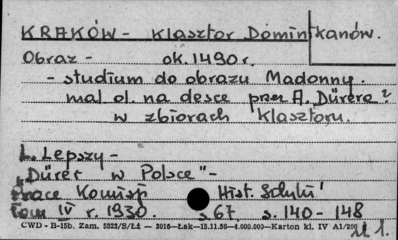 KRAKÓW - Klasztor Dominikanów.
Obraz - ok. 1490 r.
- studium do obrazu Madonny.
mal ol. na desce przez A. Dürera?
w zbiorach Klasztoru.
L. Lepszy -
"Dürer w Polsce" -
Prace Komisji Hist. Sztuki
tom IV r. 1930. s. 67. s. 140-148
CWD - B-15b. Zam. 5823/S/Łż — 3016—Łak—15.11.56—4.000.000—Karton kl. IV A1/200